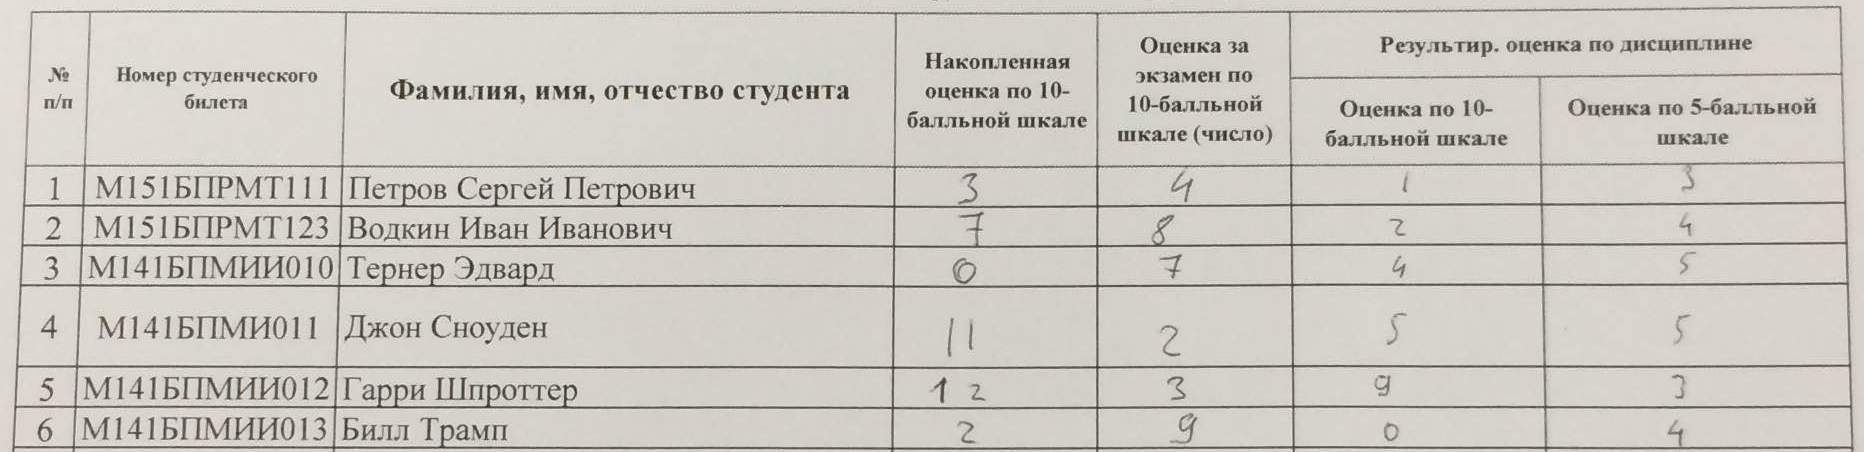 № п/п Номер студенческого билета Фамилия, имя, отчество студента Накопленная оценка по 10-балльной шкале Оценка за экзамен по 10-балльной шкале (число) Результир. оценка по дисциплине
Оценка по 10-балльной шкале Оценка по 5-балльной шкале
1 М151БПРМТ111 Петров Сергей Петрович 3 4 1 3
2 М151БПРМТ123 Водкин Иван Иванович 7 8 2 4
3 М141БПМИИ010 Тернер Эдвард 0 7 4 5
4 М141БПМИ011 Джон Сноуден 11 2 5 5
5 М141БПМИИ012 Гарри Шпроттер 12 3 9 3
6 М141БПМИИ013 Билл Трамп 2 9 0 4